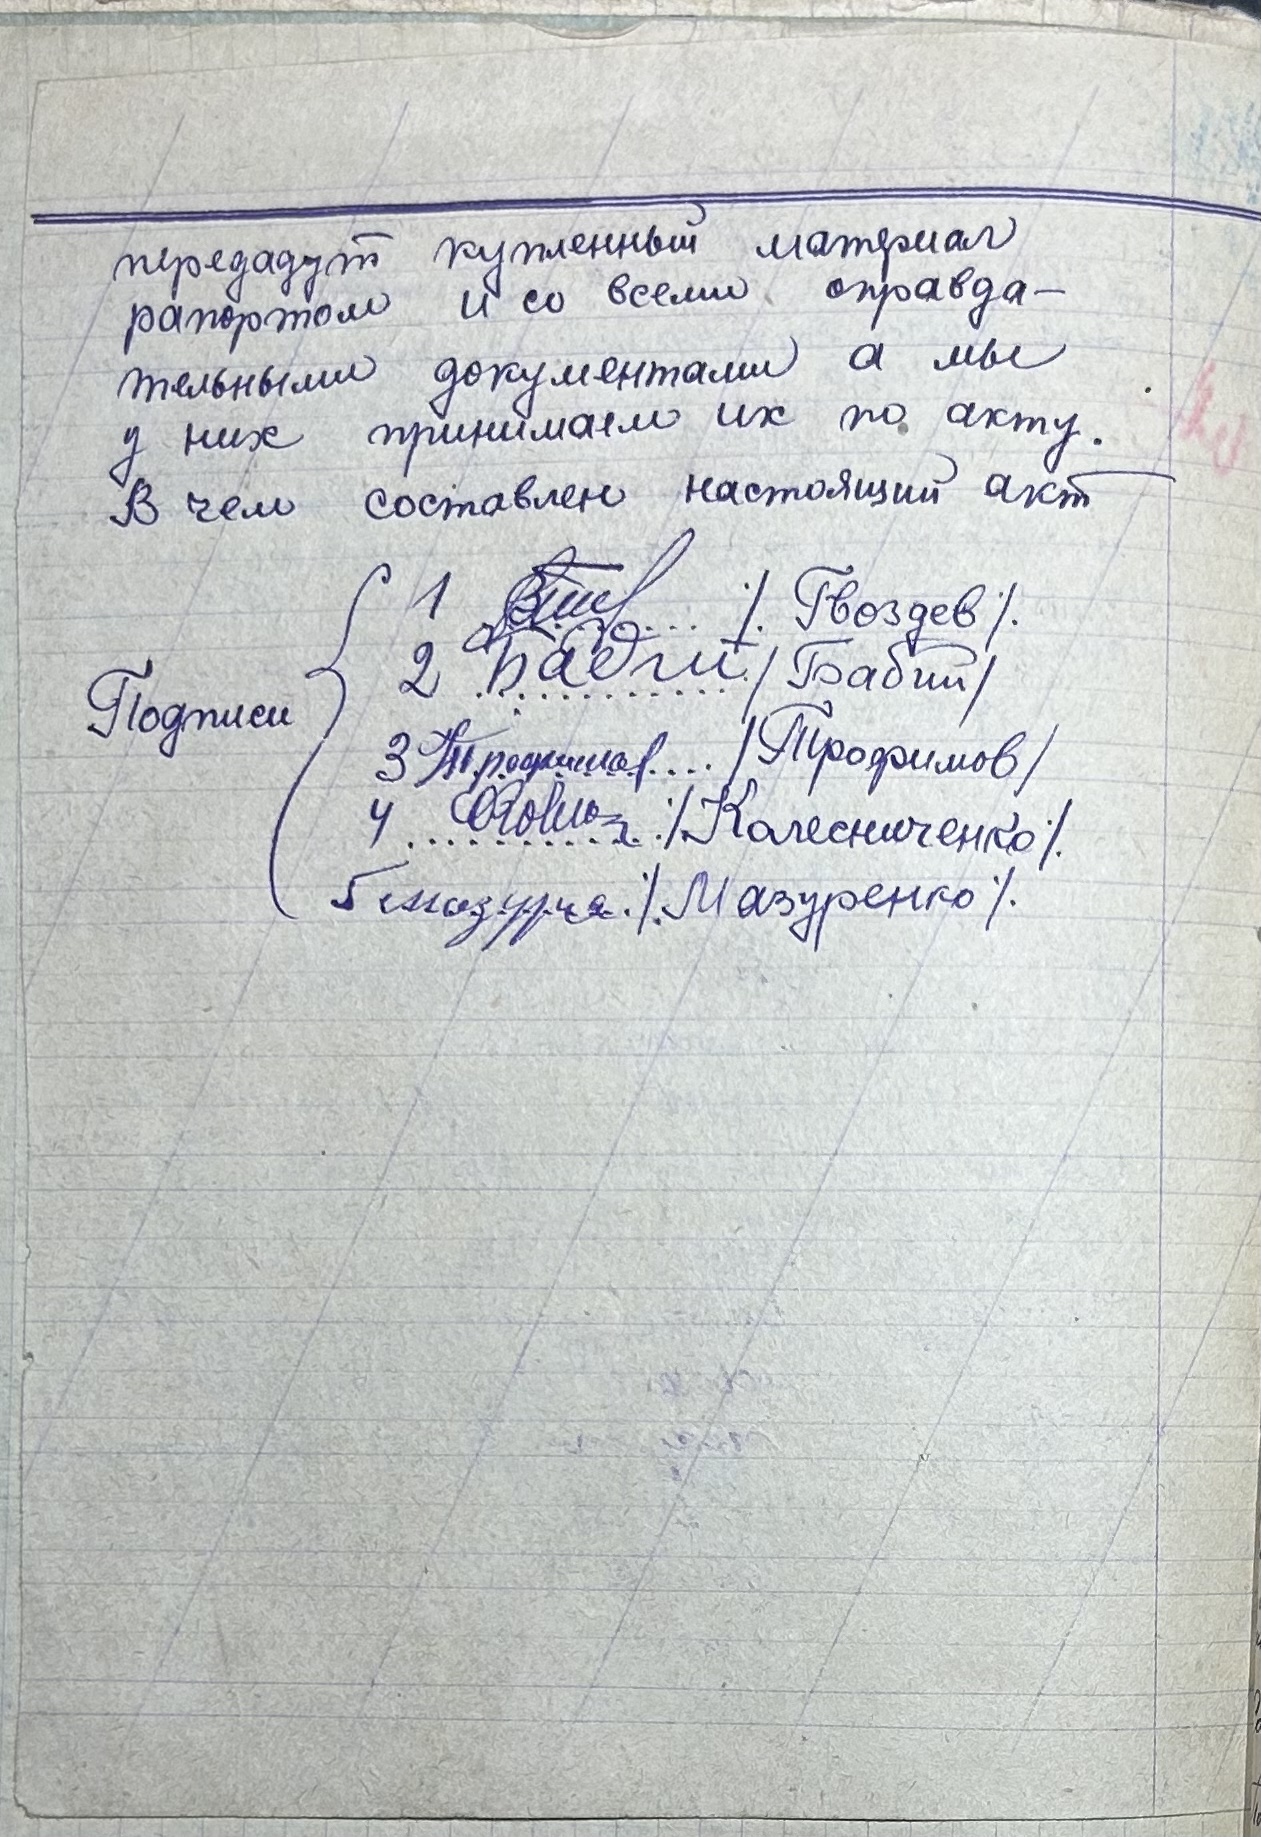 передадут купленный материал
рапортом и со всеми оправда-
тельными документами а мы
у них принимаем их по акту.
В чем составлен настоящий акт
Подписи
1 ............ /. Гвоздев /.
2 ............ / Бабий /
3 Трофимов .... / Трофимов /
4 ............ /. Колесниченко /.
5 ............ /. Мазуренко /.